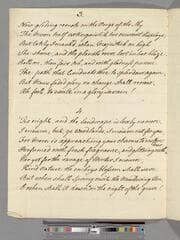 3.
Now gliding remote on the verge of the sky
The Moon half extinguish'd her crescent displays
But lately I mark'd, when majestic on high
She shone, and the planets were lost in her blaze.
Roll on, thou fair orb, and with gladness pursue
The path that conducts thee to splendour again.
But Man's faded glory no change shall renew.
Ah fool, to exult in a glory so vain!
4
'Tis night, and the landscape is lovely no more.
I mourn, but, ye woodlands, I mourn not for you.
For morn is approaching your charms to restore
Perfumed with fresh fragrance, and glittering with
Nor yet for the ravage of Winter I mourn.
Kind Nature the embryo blossom shall save
But when shall spring visit the mouldering urn
O when shall it dawn on the night of the grave!